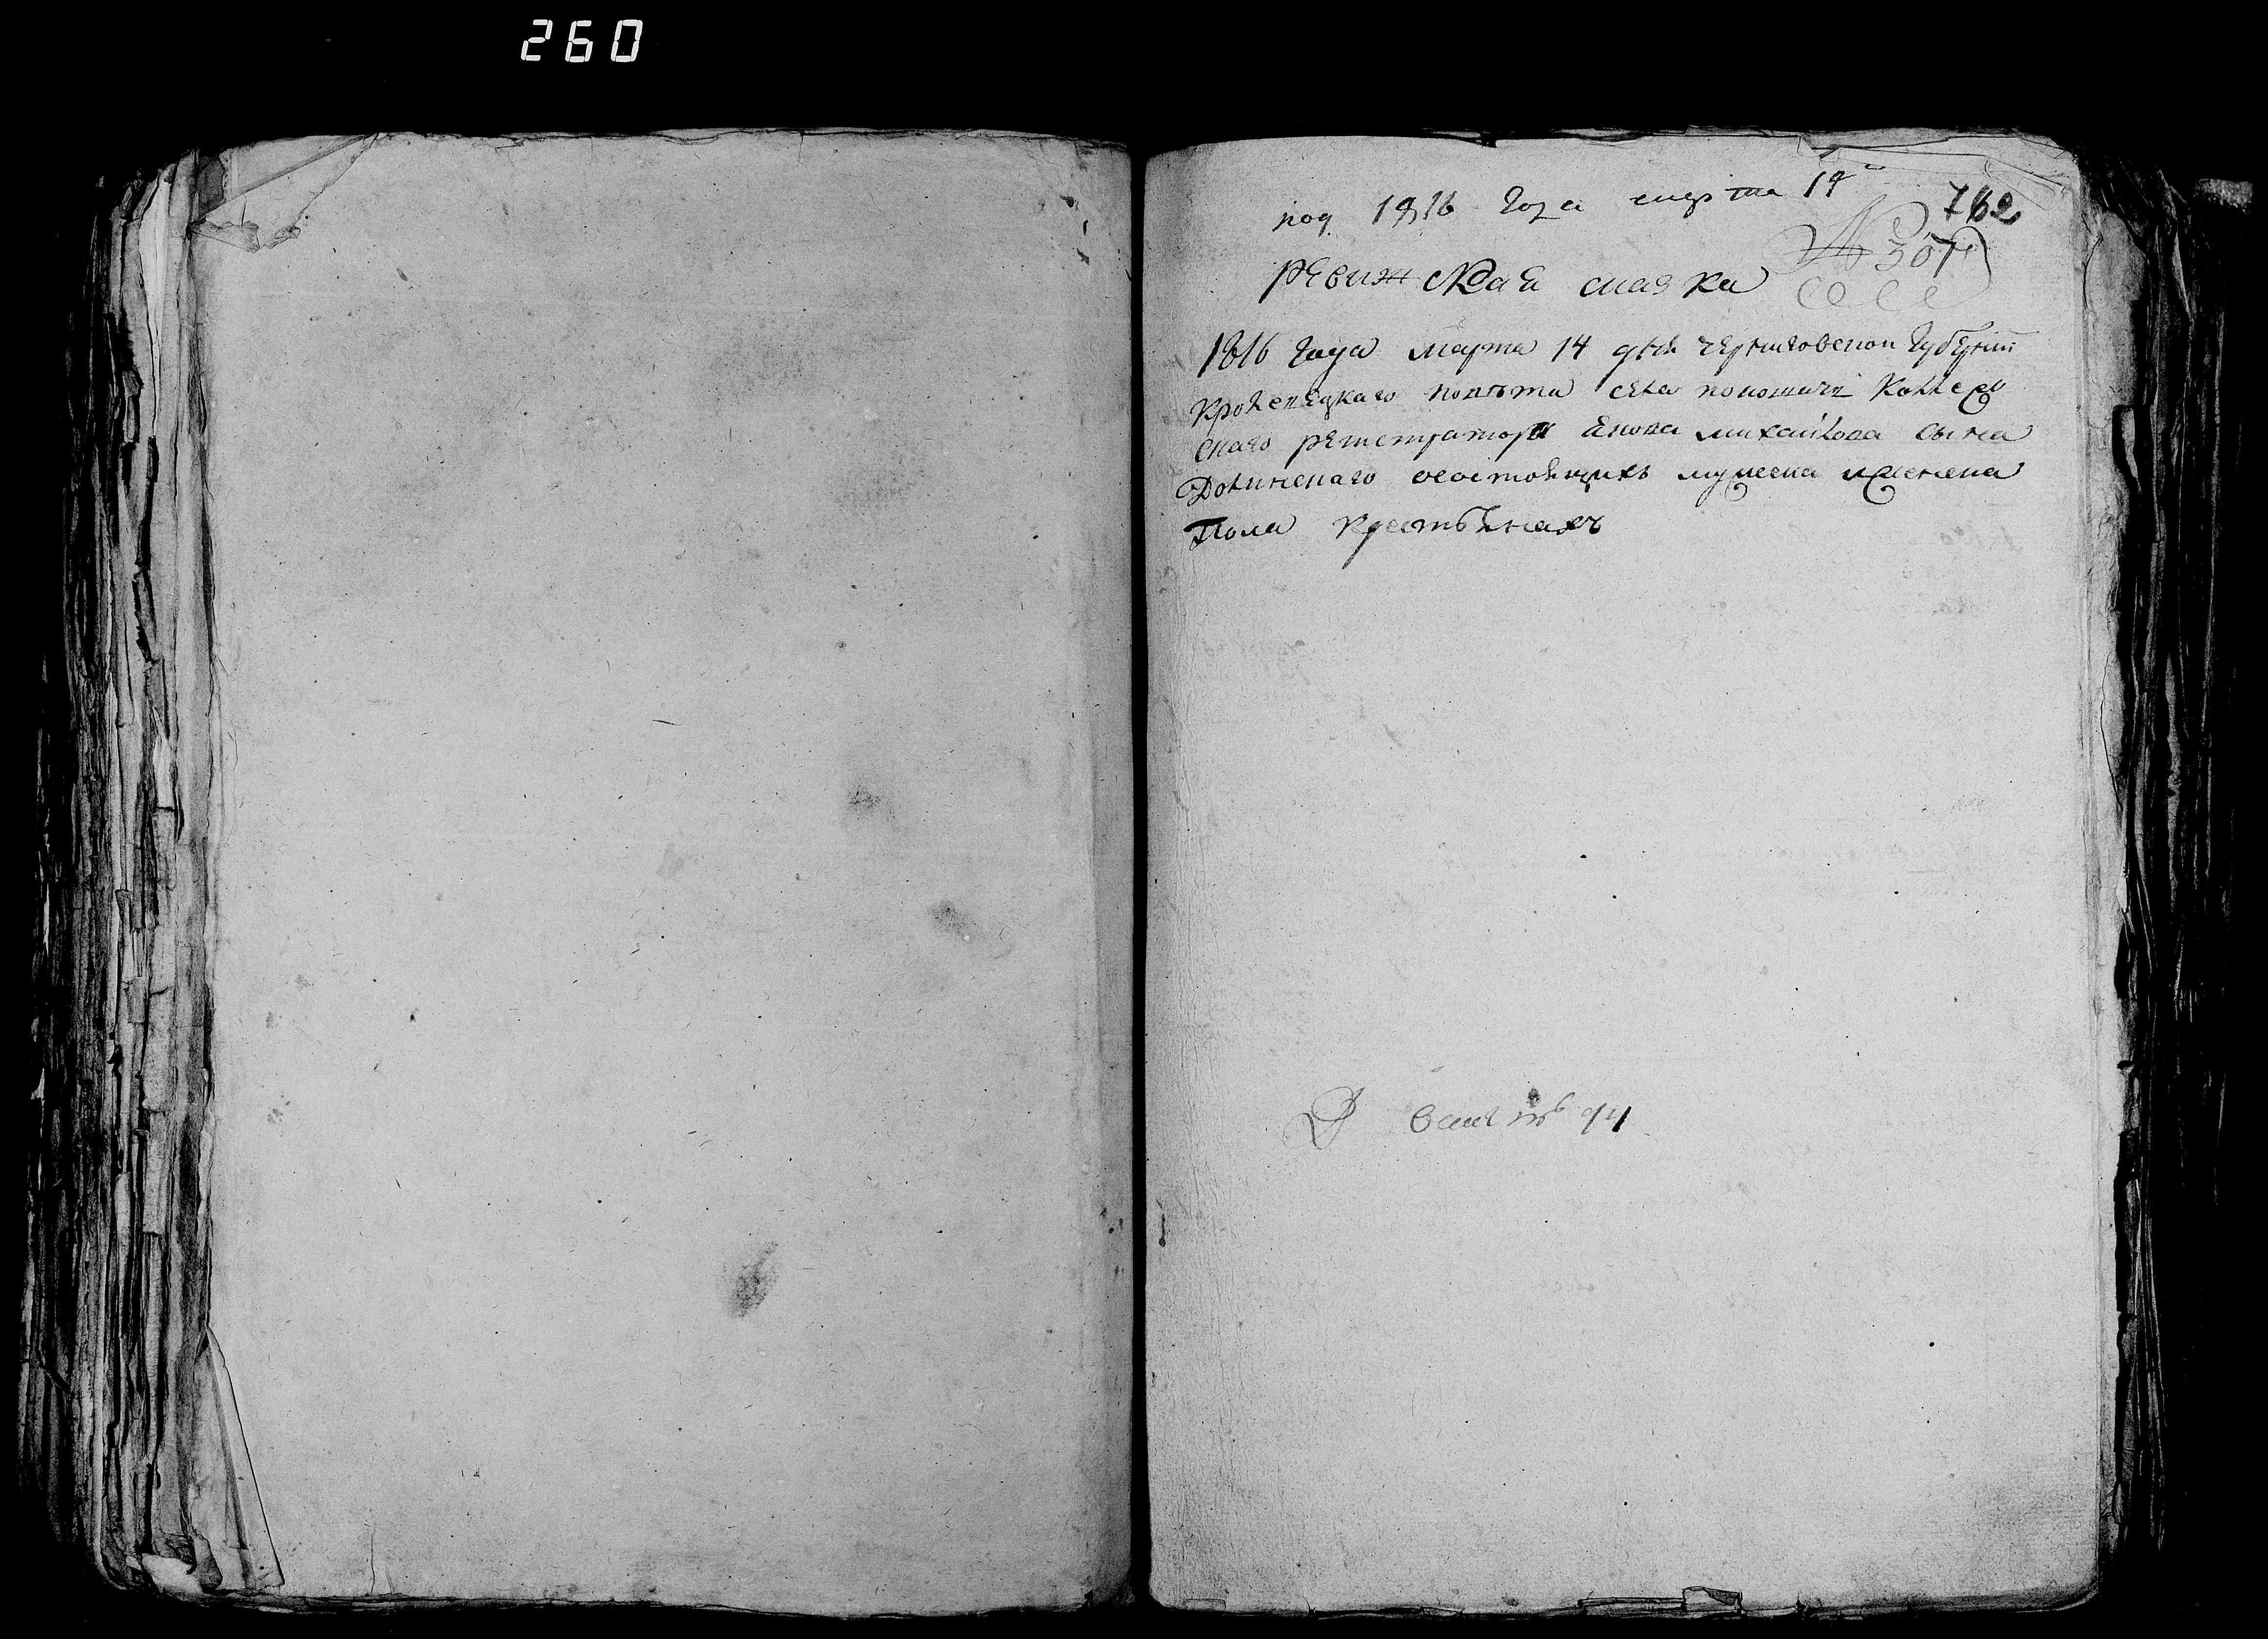 260
под 1816 года марта 14
762
№ 307
ревижская сказка
1816 года марта 14 дня черниговской губернии
кролевецкаго повѣта села Коллеж
скаго регистратора Якова михайлова сына
Долинскаго состоящихъ мужеска и женска
Пола крестьянахъ